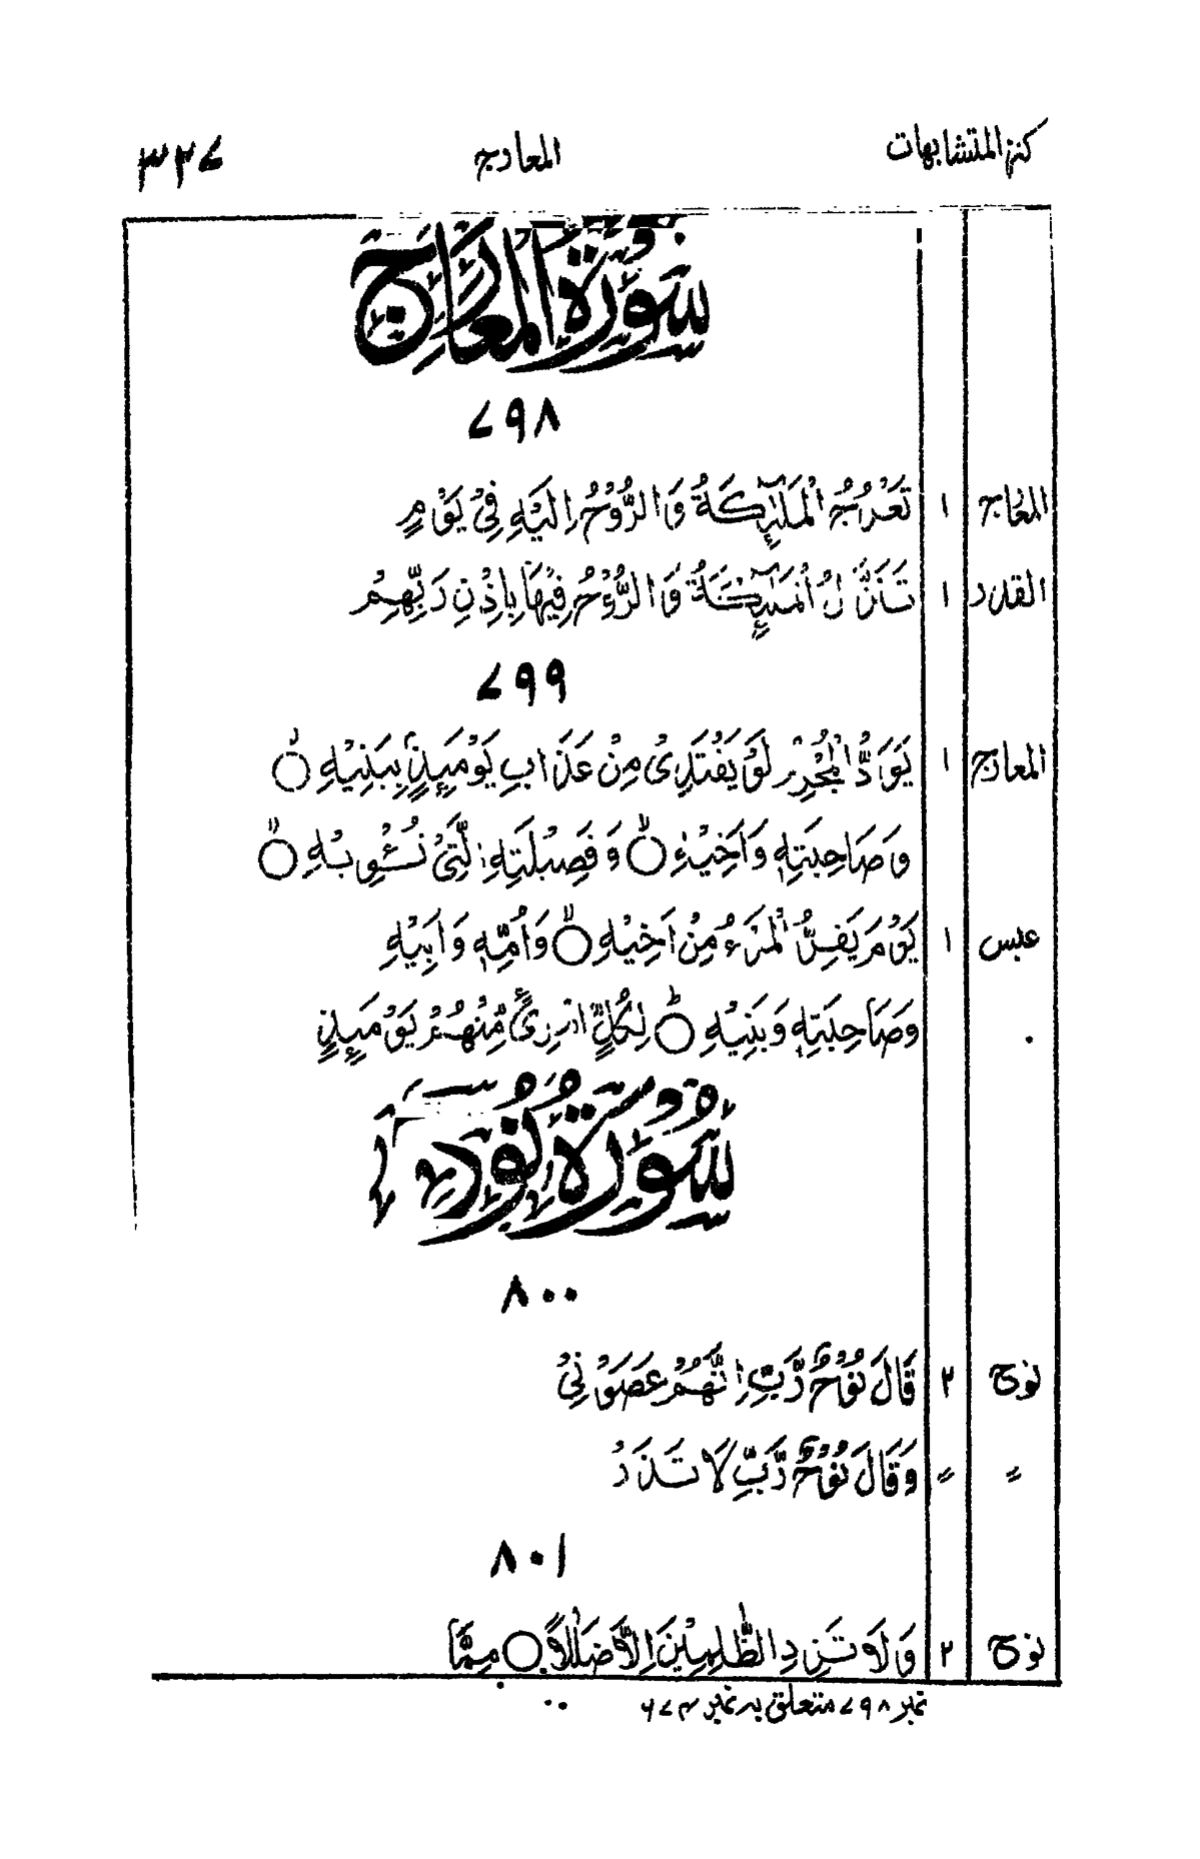 كنز المتشابهات المعارج ٣٢٧
سُوْرَةُ الْمَعَارِجِ
٧٩٨
المعارج ١ تَعْرُجُ الْمَلٰٓئِكَةُ وَالرُّوْحُ اِلَيْهِ فِيْ يَوْمٍ
القدر ١ تَنَزَّلُ الْمَلٰٓئِكَةُ وَالرُّوْحُ فِيْهَا بِاِذْنِ رَبِّهِمْ
٧٩٩
المعارج ١ يَوَدُّ الْمُجْرِمُ لَوْ يَفْتَدِىْ مِنْ عَذَابِ يَوْمَئِذٍۢ بِبَنِيْهِ ۙ
وَصَاحِبَتِهٖ وَاَخِيْهِ ۙ وَفَصِيْلَتِهِ الَّتِىْ تُـْٔوِيْهِ ۙ
عبس ١ يَوْمَ يَفِرُّ الْمَرْءُ مِنْ اَخِيْهِ ۙ وَاُمِّهٖ وَاَبِيْهِ
وَصَاحِبَتِهٖ وَبَنِيْهِ ؕ لِكُلِّ امْرِئٍ مِّنْهُمْ يَوْمَئِذٍ
سُوْرَةُ نُوْحٍ
٨٠٠
نوح ٢ قَالَ نُوْحٌ رَّبِّ اِنَّهُمْ عَصَوْنِيْ
〃 〃 وَقَالَ نُوْحٌ رَّبِّ لَا تَذَرْ
٨٠١
نوح ٢ وَلَا تَزِدِ الظّٰلِمِيْنَ اِلَّا ضَلٰلًا ۝ مِمَّا
نمبر ٧٩٨ متعلق بہ نمبر ٦٧٣